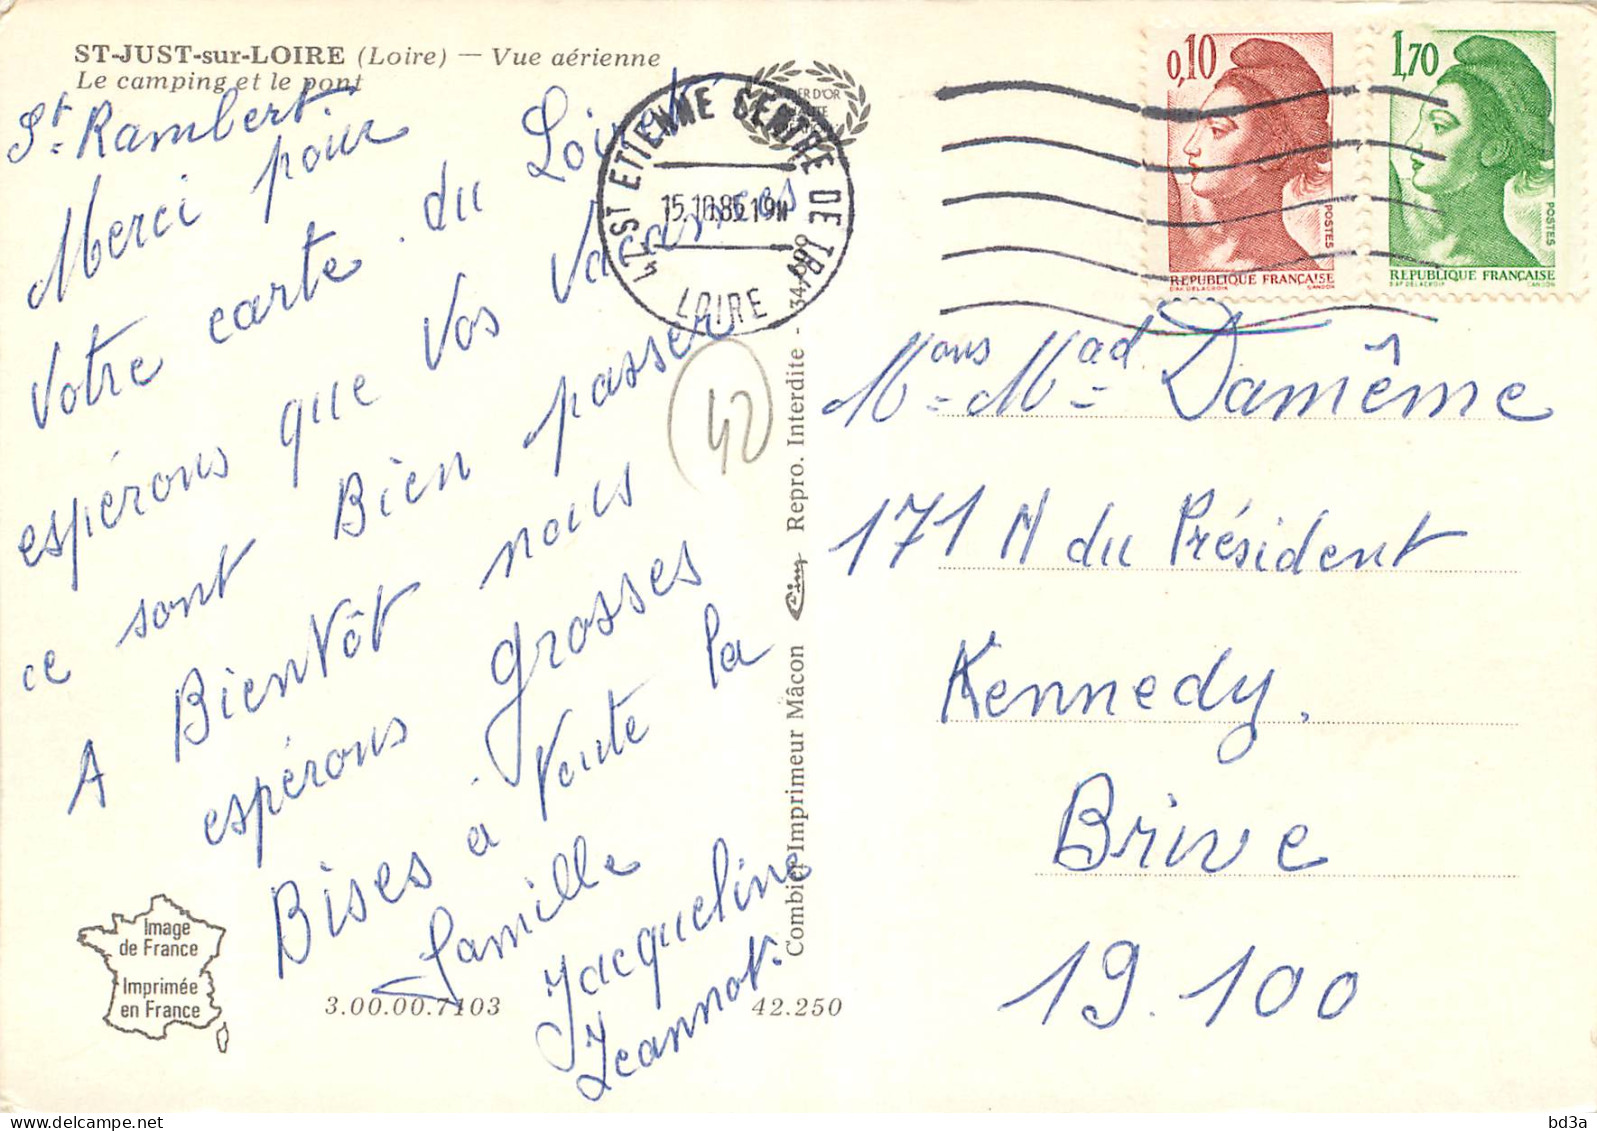 ST-JUST-sur-LOIRE (Loire) — Vue aérienne
Le camping et le pont
St. Rambert.
Merci pour
Votre carte du Loiret
espérons que Vos Vacances
ce sont Bien passer
A BientÔt nous
espérons grosses
Bises a toute la
famille
Jacqueline
Jeannot.
42 ST ETIENNE CENTRE DE TRI
15.10.86.19H
LOIRE
42
0,10
POSTES
REPUBLIQUE FRANÇAISE
D'AP. DELACROIX GANDON
1,70
POSTES
REPUBLIQUE FRANÇAISE
D'AP. DELACROIX GANDON
Mons Mad Damême
171 A du Président
Kennedy.
Brive
19.100
Combier Imprimeur Mâcon Cim Repro. Interdite -
Image
de France
Imprimée
en France
3.00.00.7103
42.250
bd3a